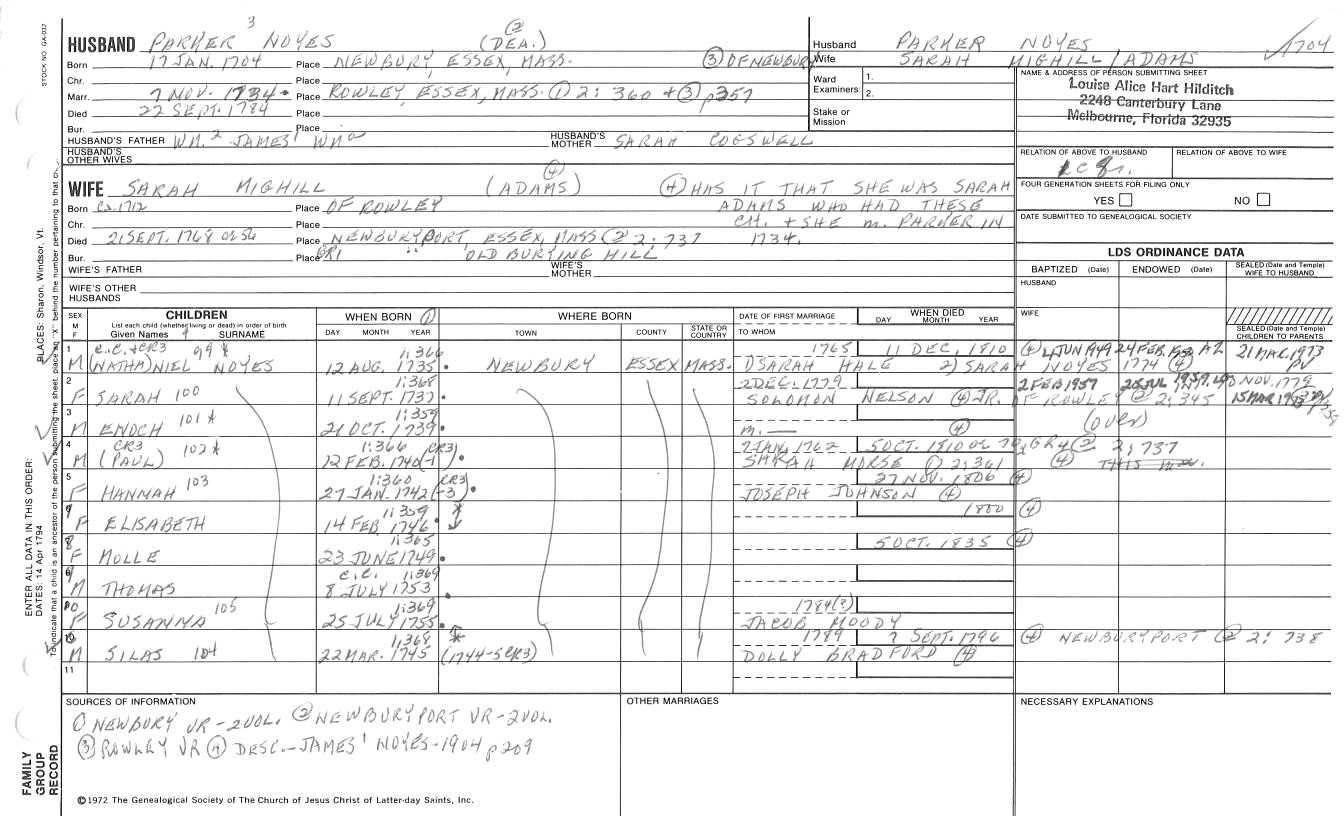 STOCK NO. GA-032
3
HUSBAND PARKER NOYES (DEA.) ②
Born 17 JAN. 1704 Place NEWBURY, ESSEX, MASS. ③ OF NEWBURY
Chr. Place
Marr. 7 NOV. 1734. Place ROWLEY, ESSEX, MASS. ① 2: 360 + ③ p357
Died 22 SEPT. 1784 Place
Bur. Place
HUSBAND'S FATHER WM.² JAMES¹ WMᵃ HUSBAND'S MOTHER SARAH COGSWELL
HUSBAND'S OTHER WIVES
WIFE SARAH MIGHILL (ADAMS) ④ ④ HAS IT THAT SHE WAS SARAH
Born Ca. 1712 Place OF ROWLEY ADAMS WHO HAD THESE
Chr. Place CH. + SHE m. PARKER IN
Died 21 SEPT. 1768 or 56 Place NEWBURYPORT, ESSEX, MASS ② 2: 737 1734.
Bur. Place GR1 " OLD BURYING HILL
WIFE'S FATHER WIFE'S MOTHER
WIFE'S OTHER HUSBANDS
Husband PARKER NOYES 1704
Wife SARAH MIGHILL/ADAMS
Ward Examiners: 1. 2.
Stake or Mission
NAME & ADDRESS OF PERSON SUBMITTING SHEET
Louise Alice Hart Hilditch
2248 Canterbury Lane
Melbourne, Florida 32935
RELATION OF ABOVE TO HUSBAND RELATION OF ABOVE TO WIFE
FOUR GENERATION SHEETS FOR FILING ONLY
YES NO
DATE SUBMITTED TO GENEALOGICAL SOCIETY
LDS ORDINANCE DATA
BAPTIZED (Date) ENDOWED (Date) SEALED (Date and Temple) WIFE TO HUSBAND
HUSBAND
WIFE
SEALED (Date and Temple) CHILDREN TO PARENTS
SEX M F
CHILDREN
List each child (whether living or dead) in order of birth
Given Names SURNAME
WHEN BORN ①
DAY MONTH YEAR
WHERE BORN
TOWN COUNTY STATE OR COUNTRY
DATE OF FIRST MARRIAGE
TO WHOM
WHEN DIED
DAY MONTH YEAR
1 C.C. + CR3 99 * 1:366 1765 11 DEC, 1810 ④ 4 JUN 1949 24 FEB. AZ 21 MAR. 1973
M (NATHA)NIEL NOYES 12 AUG. 1735. NEWBURY ESSEX MASS. 1) SARAH HALE 2) SARAH NOYES 1774 ④ PV
2 1:368 2 DEC. 1779 2 FEB 1957
F SARAH 100 11 SEPT. 1737 SOLOMON NELSON ④ JR. OF ROWLEY ② 2: 345 15 MAR
3 1:359 (OVER)
M ENOCH 101 * 21 OCT. 1739. m. — ④
4 CR3 1:366 (CR3) 7 JAN, 1762 5 OCT. 1810 or 70, GR4 ② 2; 737
M (PAUL) 102 * 12 FEB. 1740(-1). SARAH MORSE ① 2:361 ④
5 1:360 (CR3) 27 NOV. 1806 ④
F HANNAH 103 27 JAN. 1742(-3) JOSEPH JOHNSON ④
1:359 1800 ④
F ELISABETH 14 FEB. 1746.
8 1:365 5 OCT. 1835 ④
F MOLLE 23 JUNE 1749.
C.C. 1:369
M THOMAS 8 JULY 1753.
1:369 1784(?)
F SUSANNA 105 25 JULY 1755. JACOB MOODY
1:368 1789 7 SEPT. 1796 ④ NEWBURYPORT ② 2: 738
M SILAS 104 22 MAR. 1745 (1744-5 CR3) DOLLY BRADFORD ④
11
SOURCES OF INFORMATION OTHER MARRIAGES NECESSARY EXPLANATIONS
① NEWBURY VR-2VOL. ② NEWBURYPORT VR-2VOL.
③ ROWLEY VR ④ DESC.-JAMES¹ NOYES-1904 p209
©1972 The Genealogical Society of The Church of Jesus Christ of Latter-day Saints, Inc.
FAMILY GROUP RECORD
ENTER ALL DATA IN THIS ORDER:
DATES: 14 Apr 1794
PLACES: Sharon, Windsor, Vt.
To indicate that a child is an ancestor of the person submitting the sheet, place an "X" behind the number pertaining to that